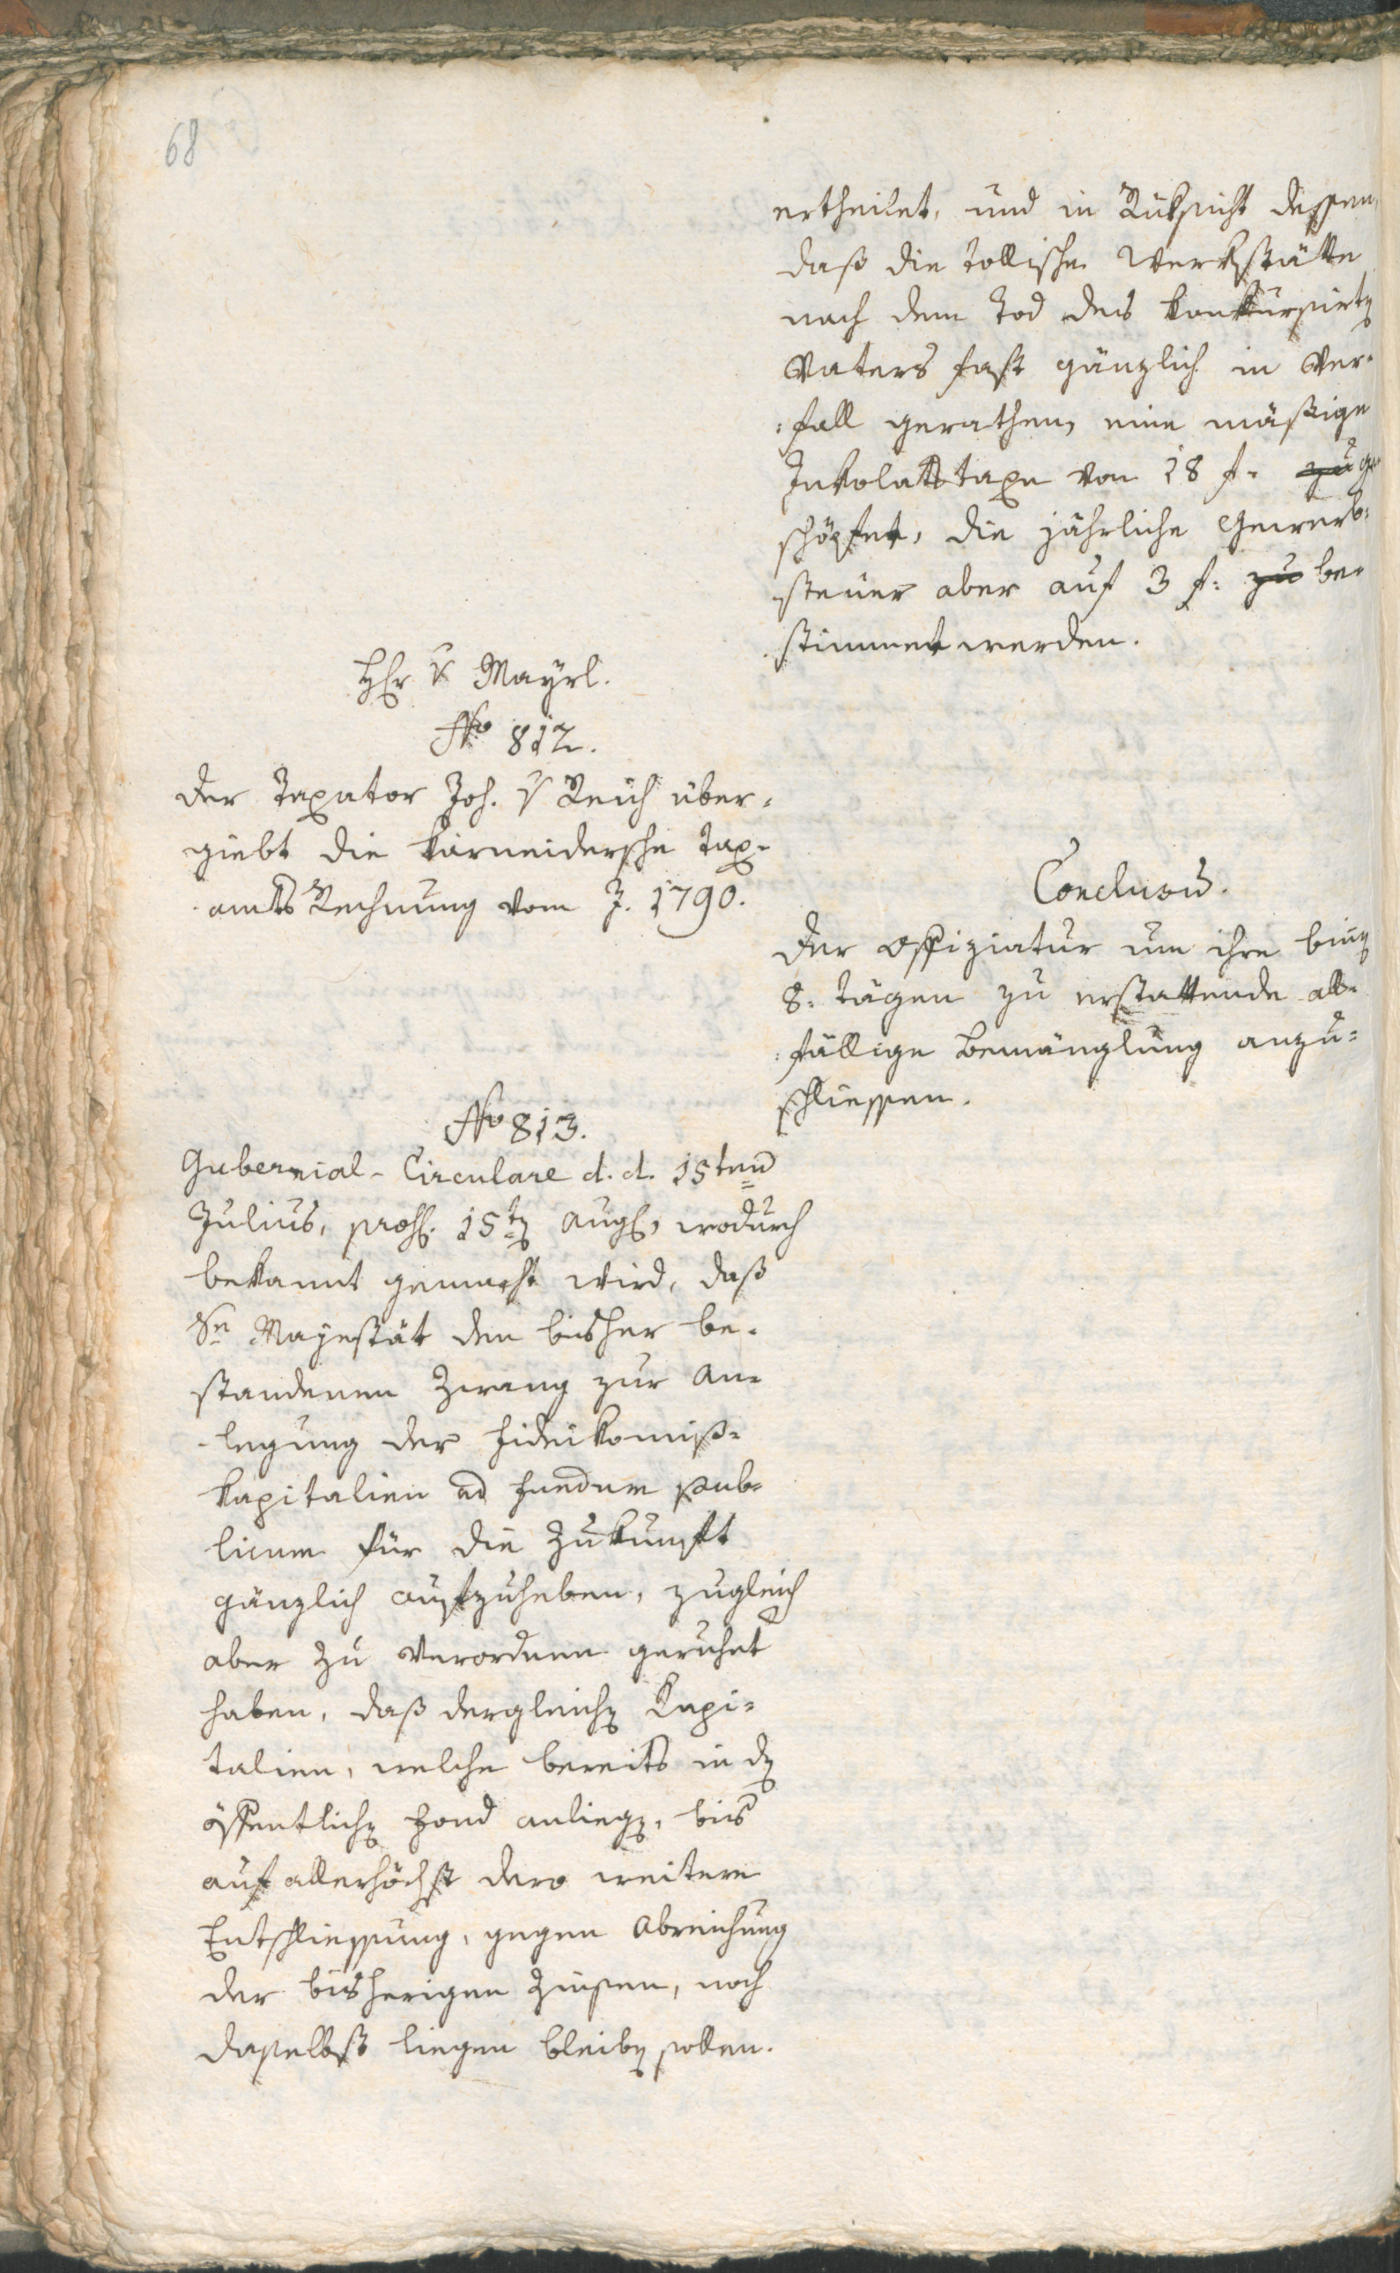 68
ertheilet, und in Rüksicht dessen,
daß die tollische Werkstätte
nach dem Tod des konkursirtn
Vaters fast gänzlich in Ver-
:fall gerathen, eine mäßige
Inkolatstaxe von 18 f. zu ge-
schöpfet, die jährliche Gewerb-
steuer aber auf 3 f: zu be-
stimmet werden.
Hr v Mayrl.
No 812.
Der Taxator Joh. v Reich über-
giebt die karneidersche Tax-
amts Rechnung vom J. 1790.
Conclusū.
Der Offiziatur um ihre binn
8. Tägen zu erstattende all-
:fällige Bemänglung anzu-
schliessen.
No 813.
Gubernial-Circulare d. d. 15ten
Julius, 15tn Aug, wodurch
bekannt gemacht wird, daß
Se Mayestät den bisher be-
standenen Zwang zur An-
legung der Fideikomiß-
kapitalien ad fundum pub-
licum für die Zukunft
gänzlich aufzuheben, zugleich
aber zu verordnen geruhet
haben, daß dergleichn Kapi-
talien, welche bereits in dn
öffentlichn Fond anliegn, bis
auf allerhöchst dero weitere
Entschliessung, gegen Abreichung
der bisherigen Zinsen, noch
daselbst liegen bleibn sollen.